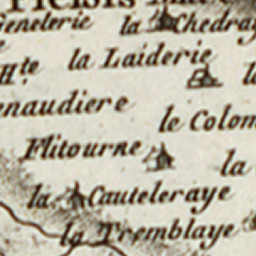 Genetterie la Chedray
Hte la Laiderie
enaudiere
le Colom
Flitourne
la
la Cauteleraye
la Tremblaye